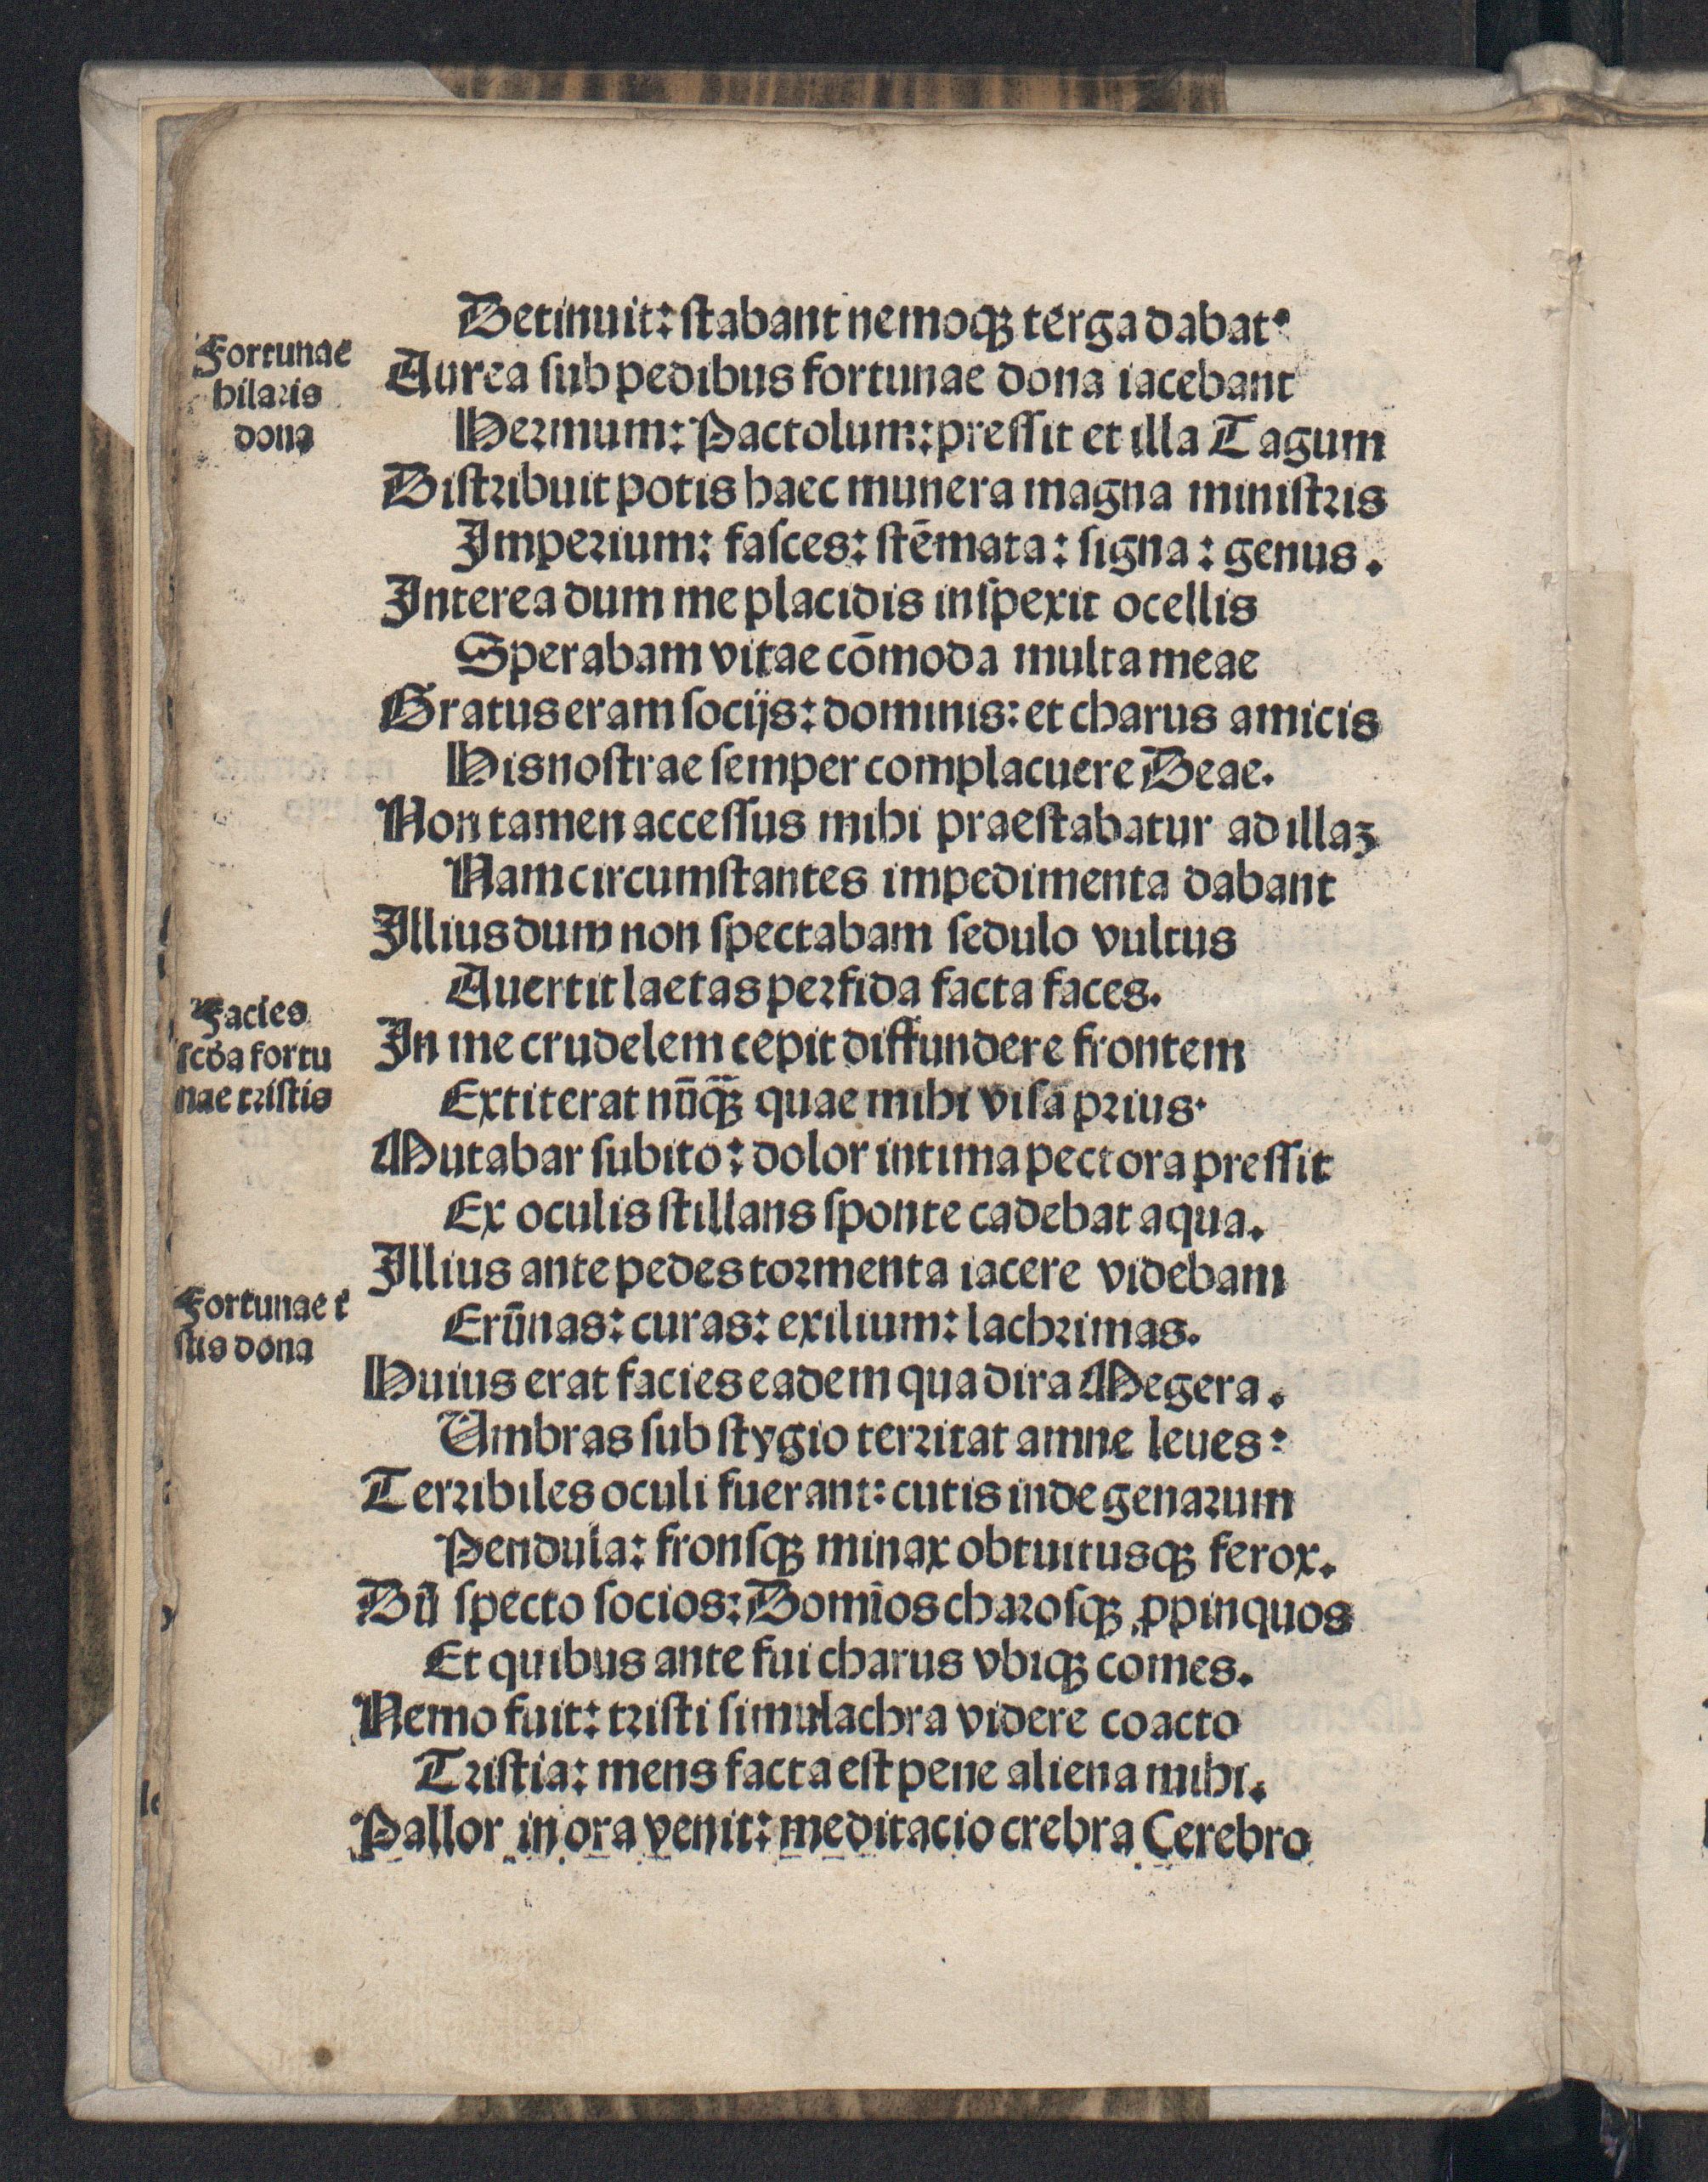 Detinuit: ſtabant nemoqꝫ terga dabat.
Fortunae
hilaris
dona
Aurea ſub pedibus fortunae dona iacebant
Hermum: Pactolum: preſſit et illa Tagum
Diſtribuit potis haec munera magna miniſtris
Imperium: faſces: ſtēmata: ſigna: genus.
Interea dum me placidis inſpexit ocellis
Sperabam vitae cōmoda multa meae
Gratus eram ſocijs: dominis: et charus amicis
His noſtrae ſemper complacuere Deae.
Non tamen acceſſus mihi praeſtabatur ad illaꝫ
Nam circumſtantes impedimenta dabant
Illius dum non ſpectabam ſedulo vultus
Auertit laetas perfida facta faces.
Facies
ſcďa fortu
nae triſtis
In me crudelem cepit diffundere frontem
Extiterat nūqꝫ̄ quae mihi viſa prius.
Mutabar ſubito: dolor intima pectora preſſit
Ex oculis ſtillans ſponte cadebat aqua.
Illius ante pedes tormenta iacere videbam
Fortunae t
ſtis dona
Erūnas: curas: exilium: lachrimas.
Huius erat facies eadem qua dira Megera.
Umbras ſub ſtygio territat amne leues:
Terribiles oculi fuerant: cutis inde genarum
Pendula: fronſqꝫ minax obtuituſqꝫ ferox.
Dū ſpecto ſocios: Domīos charoſqꝫ ꝓpinquos
Et quibus ante fui charus vbiqꝫ comes.
Nemo fuit: triſti ſimulachra videre coacto
Triſtia: mens facta eſt pene aliena mihi.
Pallor in ora venit: meditacio crebra Cerebro